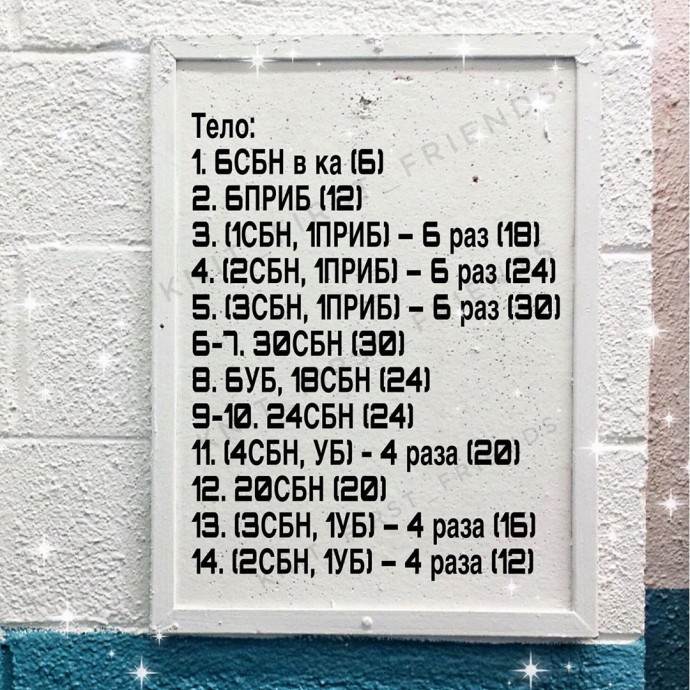 Тело:
1. 6СБН в ка (6)
2. 6ПРИБ (12)
3. (1СБН, 1ПРИБ) – 6 раз (18)
4. (2СБН, 1ПРИБ) – 6 раз (24)
5. (3СБН, 1ПРИБ) – 6 раз (30)
6-7. 30СБН (30)
8. 6УБ, 18СБН (24)
9-10. 24СБН (24)
11. (4СБН, УБ) - 4 раза (20)
12. 20СБН (20)
13. (3СБН, 1УБ) – 4 раза (16)
14. (2СБН, 1УБ) – 4 раза (12)